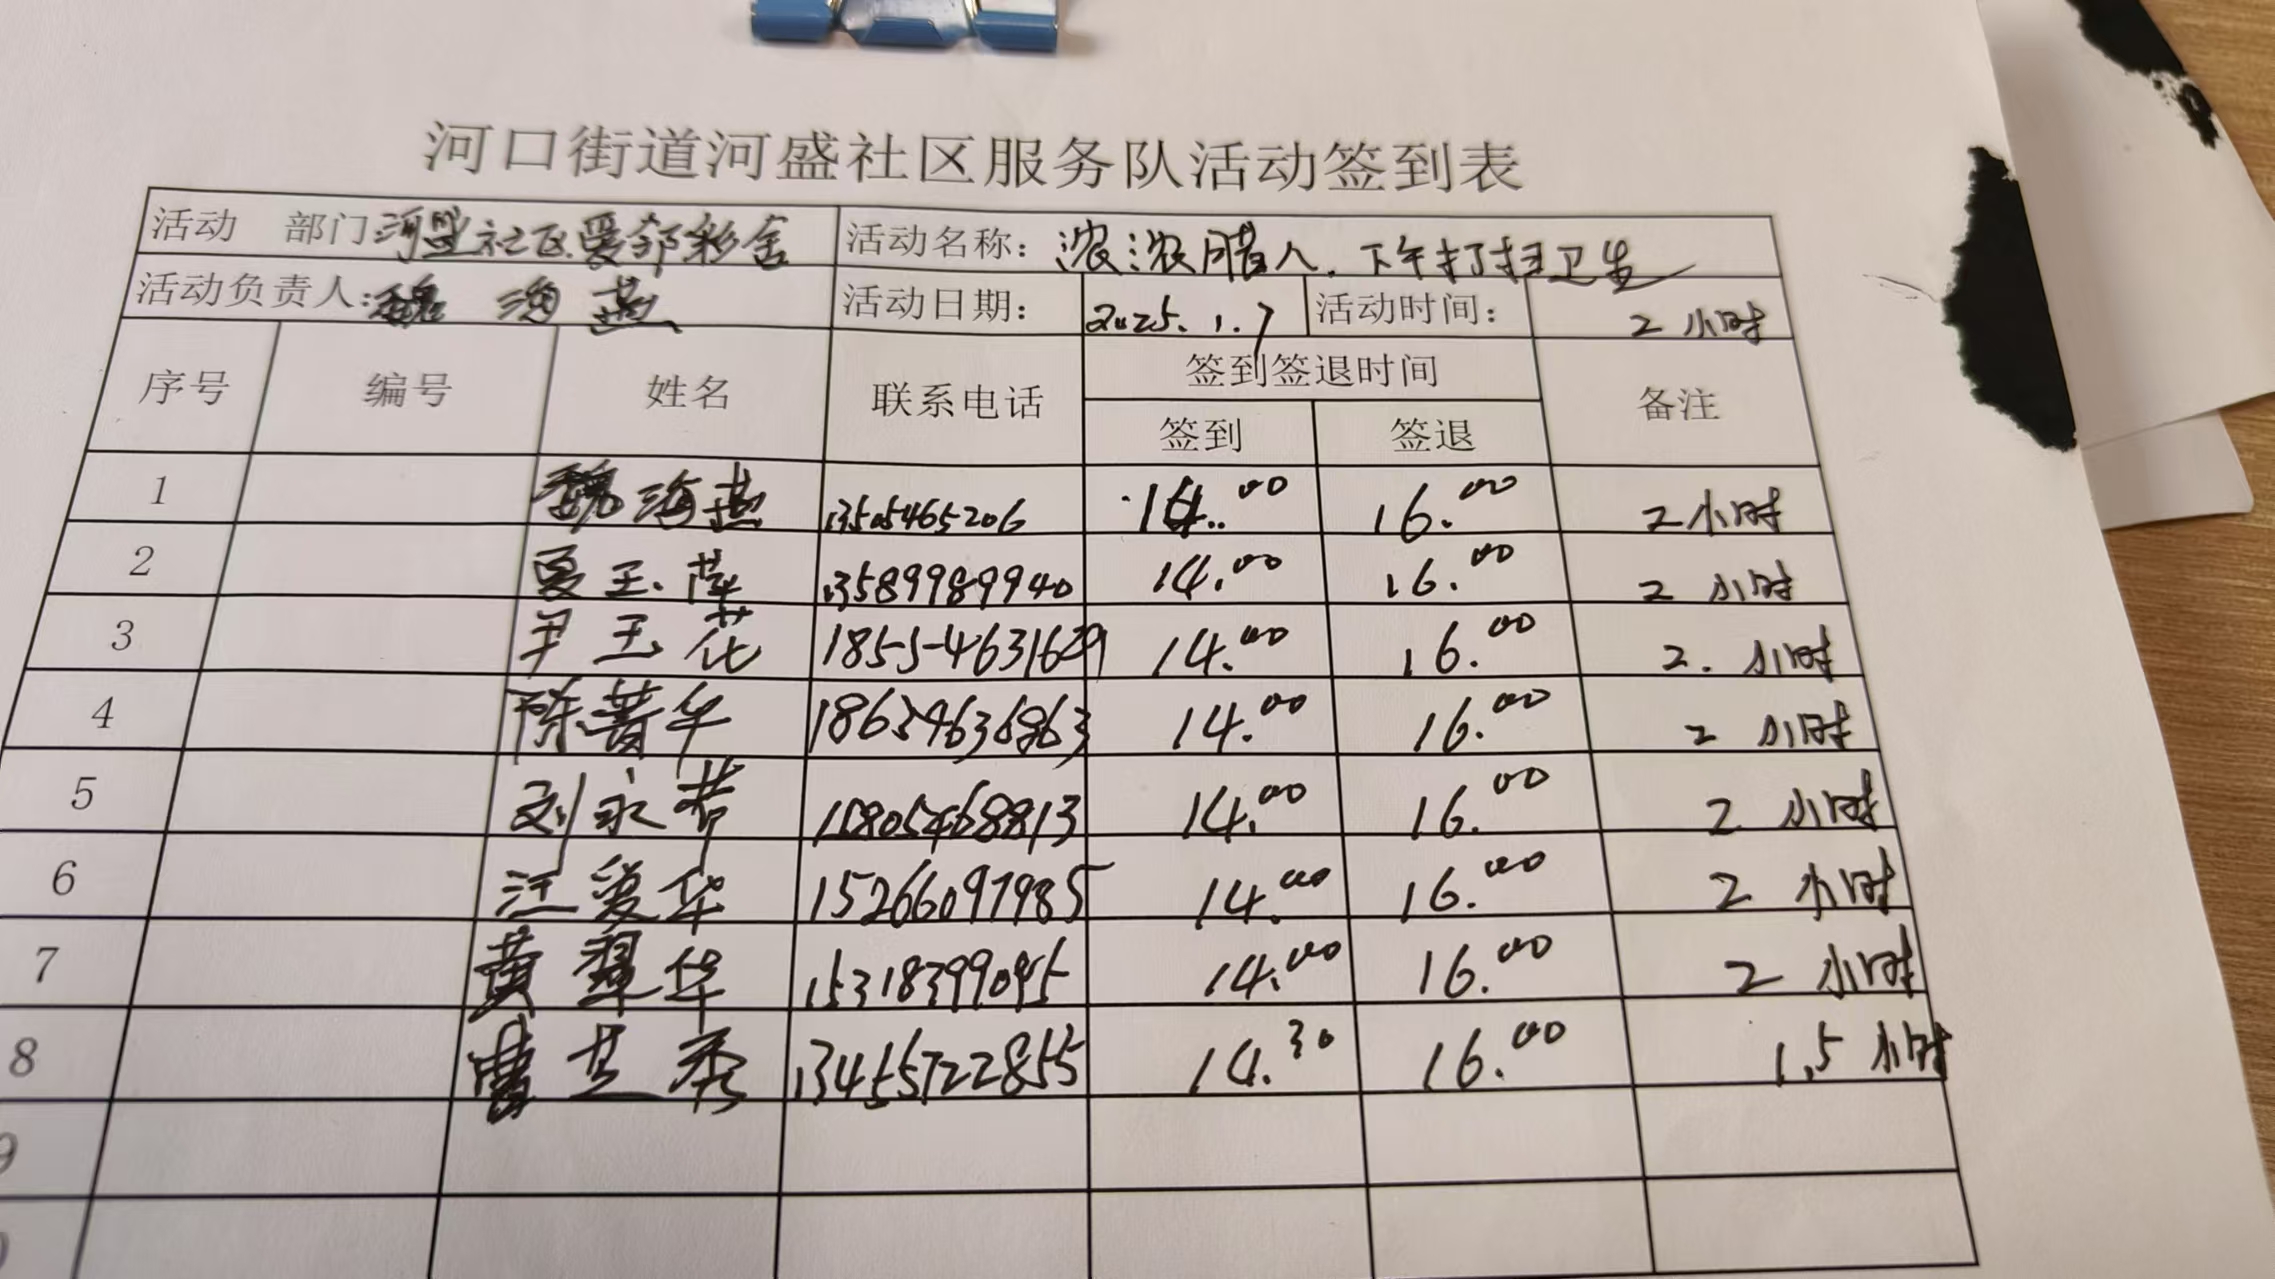 河口街道河盛社区服务队活动签到表
活动 部门 河盛社区爱邻彩舍 活动名称： 浓浓腊八、下午打扫卫生
活动负责人： 魏海燕 活动日期： 2025.1.7 活动时间： 2小时
序号 编号 姓名 联系电话 签到签退时间 备注
签到 签退
1 魏海燕 13505465206 14.00 16.00 2小时
2 夏玉萍 13589989940 14.00 16.00 2小时
3 尹玉花 14.00 16.00 2.小时
4 陈菁华 14.00 16.00 2小时
5 刘永芳 14.00 16.00 2小时
6 江爱华 15266097985 14.00 16.00 2小时
7 黄翠华 15318399095 14.00 16.00 2小时
8 曹芝秀 13455722855 14.30 16.00 1.5小时
9